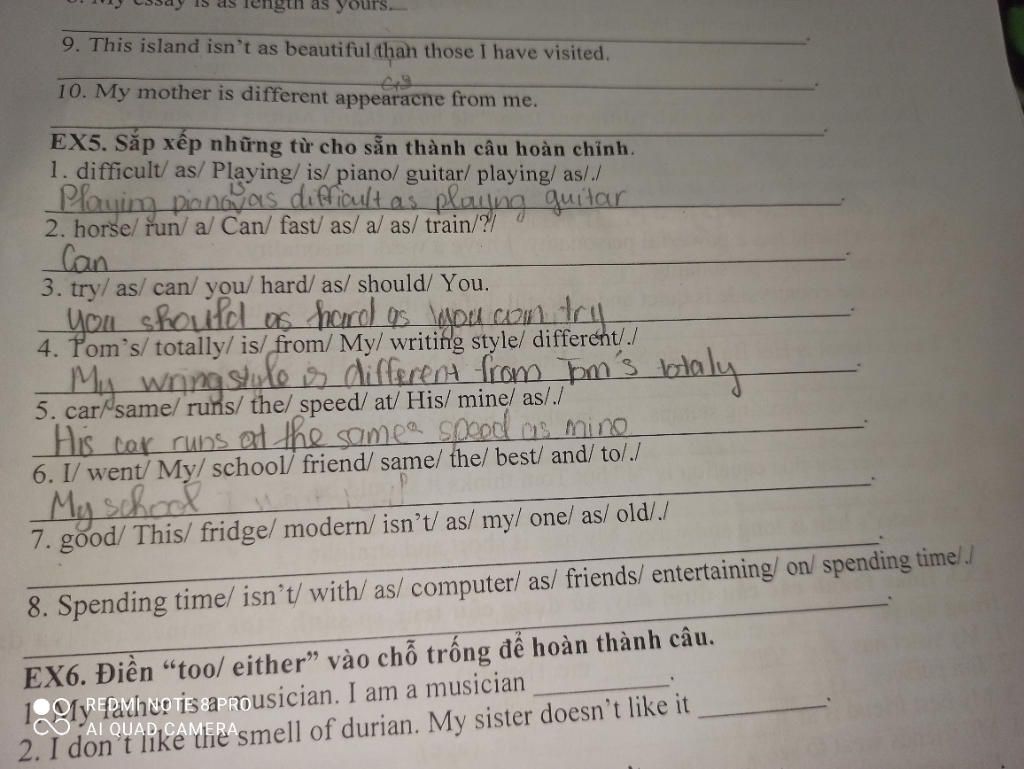 8. My essay is as length as yours.
9. This island isn't as beautiful than those I have visited.
as
10. My mother is different appearacne from me.
EX5. Sắp xếp những từ cho sẵn thành câu hoàn chỉnh.
1. difficult/ as/ Playing/ is/ piano/ guitar/ playing/ as/./
Playing piano is as difficult as playing guitar
2. horse/ run/ a/ Can/ fast/ as/ a/ as/ train/?/
Can
3. try/ as/ can/ you/ hard/ as/ should/ You.
you should as hard as you can try
4. Tom's/ totally/ is/ from/ My/ writing style/ different/./
My wring style is different from Tom's totaly
5. car/ same/ runs/ the/ speed/ at/ His/ mine/ as/./
His car runs at the same speed as mine
6. I/ went/ My/ school/ friend/ same/ the/ best/ and/ to/./
My school
7. good/ This/ fridge/ modern/ isn't/ as/ my/ one/ as/ old/./
8. Spending time/ isn't/ with/ as/ computer/ as/ friends/ entertaining/ on/ spending time/./
EX6. Điền "too/ either" vào chỗ trống để hoàn thành câu.
1. My father is a musician. I am a musician ___.
2. I don't like the smell of durian. My sister doesn't like it ___.
REDMI NOTE 8 PRO
AI QUAD CAMERA